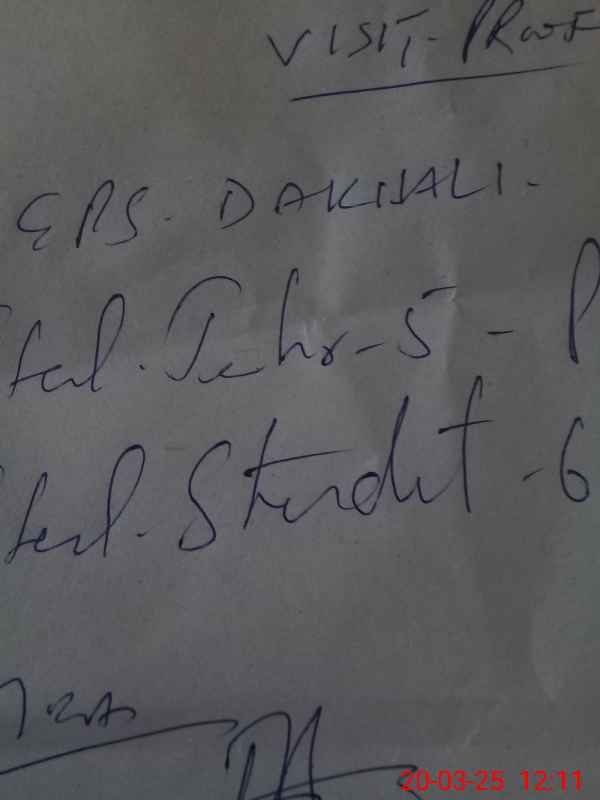 VISIT. PROOF
GPS. DAKHALI.
Total. Techr - 5 - P
Total. Student - 6
20-03-25 12:11